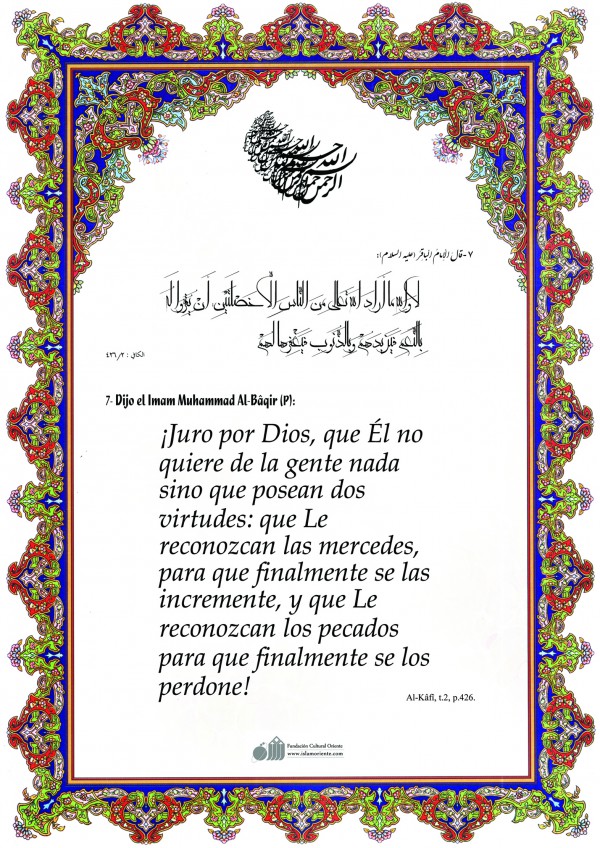 بسم الله الرحمن الرحيم
٧- قال الإمام الباقر (عليه السلام):
لا والله ما أراد الله تعالى من الناس إلّا خصلتين، أن يقرّوا له
بالنعم فيزيدهم وبالذنوب فيغفرها لهم
الكافي : ٢/ ٤٢٦
7- Dijo el Imam Muhammad Al-Bâqir (P):
¡Juro por Dios, que Él no
quiere de la gente nada
sino que posean dos
virtudes: que Le
reconozcan las mercedes,
para que finalmente se las
incremente, y que Le
reconozcan los pecados
para que finalmente se los
perdone!
Al-Kâfî, t.2, p.426.
Fundación Cultural Oriente
www.islamoriente.com